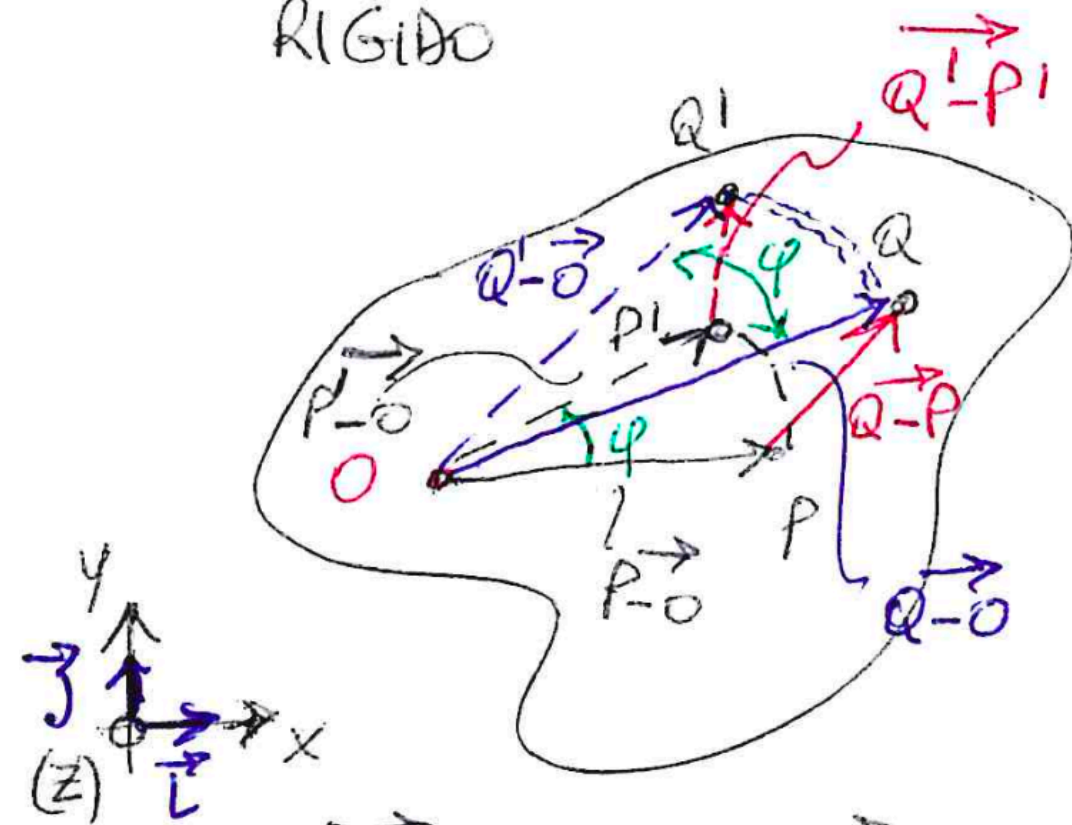 RIGIDO
Q'-P'
Q'
Q
Q'-O
φ
P'
P'-O
Q-P
O
φ
P
P-O
Q-O
y
j
x
(Z)
i